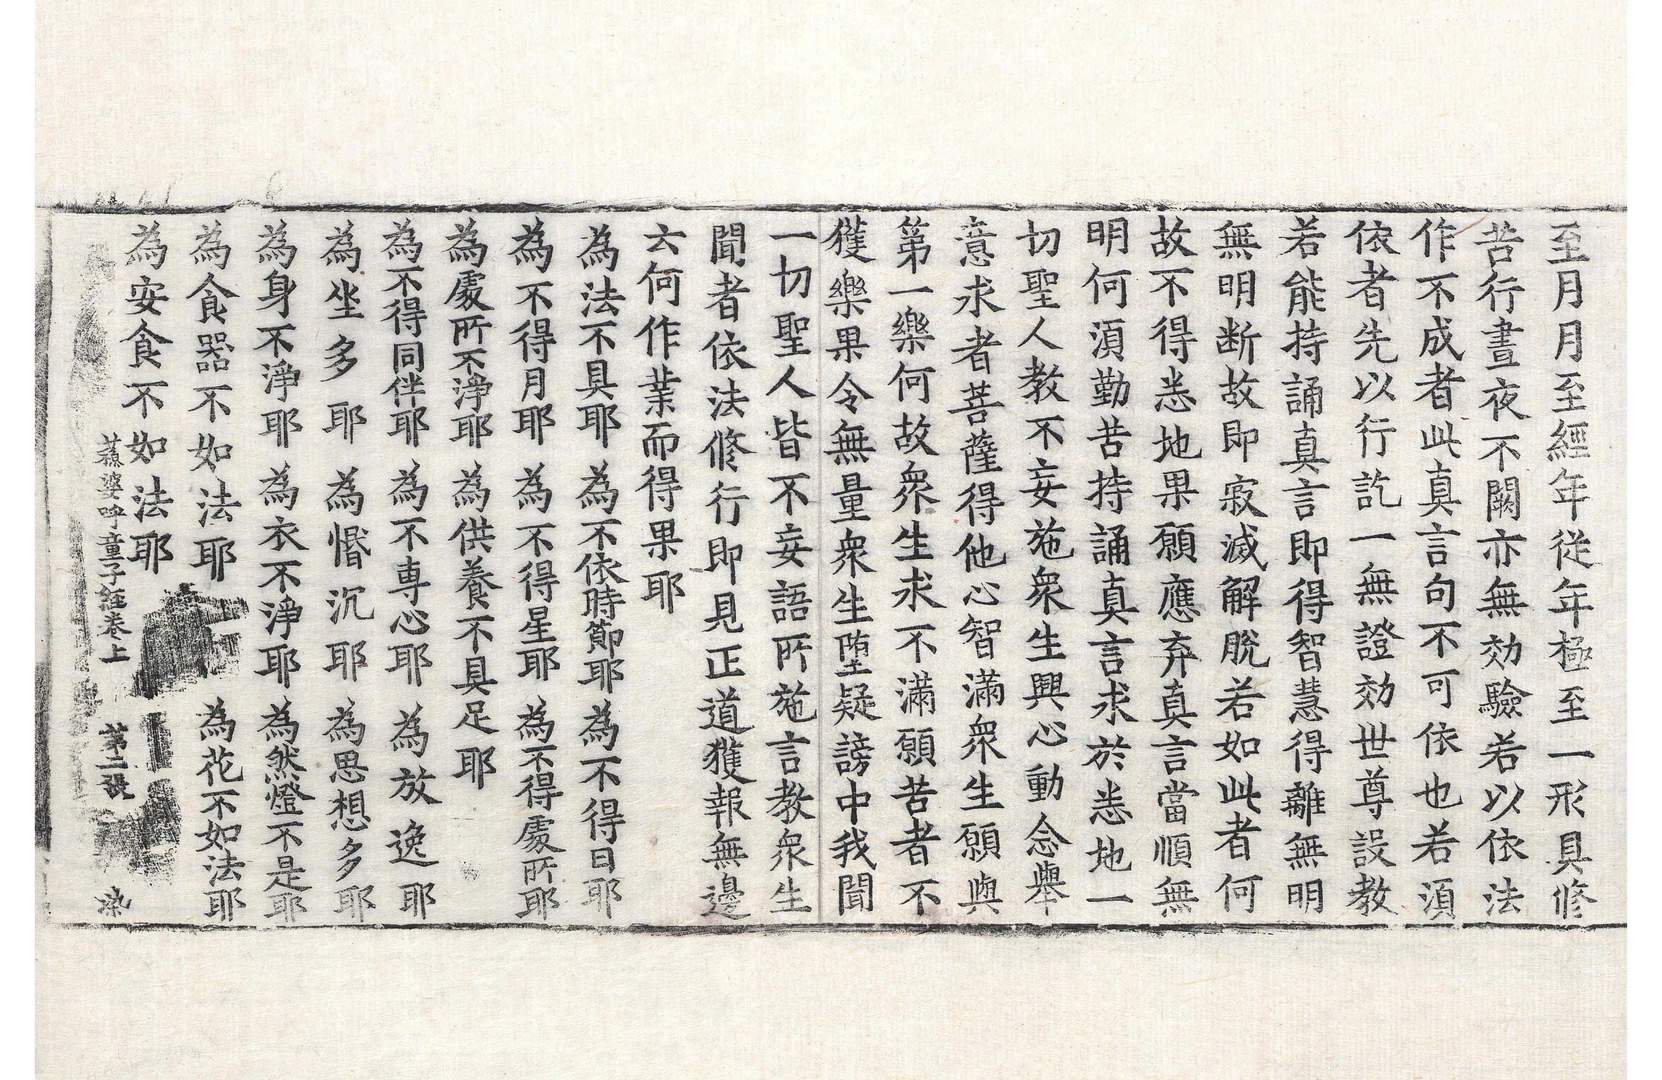 至月月至經年從年極至一形具修
苦行晝夜不闕亦無効驗若以依法
作不成者此真言句不可依也若湏
依者先以行訖一無證効世尊設教
若能持誦真言即得智慧得離無明
無明断故即寂滅解脫若如此者何
故不得悉地果願應弃真言當順無
明何湏勤苦持誦真言求於悉地一
切聖人教不妄施衆生興心動念舉
意求者菩薩得他心智滿衆生願與
第一樂何故衆生求不滿願苦者不
獲樂果令無量衆生堕疑謗中我聞
一切聖人皆不妄語所施言教衆生
聞者依法修行即見正道獲報無邊
云何作業而得果耶
為法不具耶 為不依時節耶 為不得日耶
為不得月耶 為不得星耶 為不得處所耶
為處所不淨耶 為供養不具足耶
為不得同伴耶 為不專心耶 為放逸耶
為坐多耶 為惛沉耶 為思想多耶
為身不淨耶 為衣不淨耶 為然燈不是耶
為食器不如法耶 為花不如法耶
為安食不如法耶
蘇婆呼童子經卷上 第二張 染